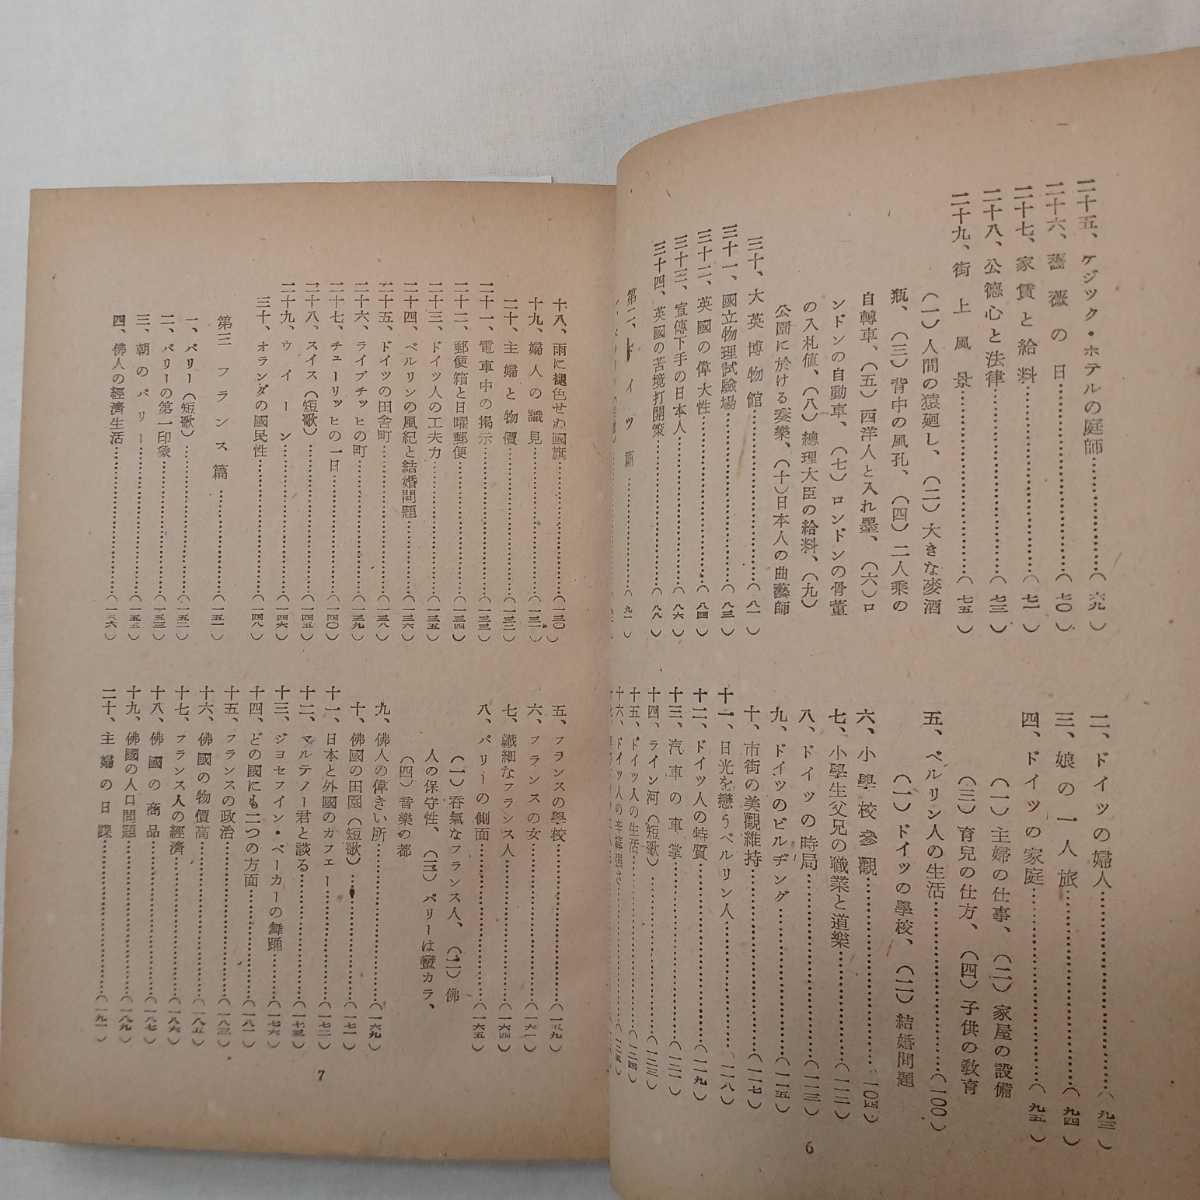 二十五、ケジック・ホテルの庭師……………(六九)
二十六、薔薇の日……………(七〇)
二十七、家賃と給料……………(七一)
二十八、公德心と法律……………(七三)
二十九、街上風景……………(七五)
(一)人間の猿廻し、(二)大きな麥酒
瓶、(三)背中の風孔、(四)二人乘の
自轉車、(五)西洋人と入れ墨、(六)ロ
ンドンの自動車、(七)ロンドンの骨董
の入札値、(八)總理大臣の給料、(九)
公園に於ける奏樂、(十)日本人の曲藝師
三十、大英博物館……………(八一)
三十一、國立物理試驗場……………(八三)
三十二、英國の偉大性……………(八四)
三十三、宣傳下手の日本人……………(八六)
三十四、英國の苦境打開策……………(八八)
第二、ドイツ篇……………(九一)
二、ドイツの婦人……………(九三)
三、娘の一人旅……………(九四)
四、ドイツの家庭……………(九五)
(一)主婦の仕事、(二)家屋の設備
(三)育兒の仕方、(四)子供の敎育
五、ベルリン人の生活……………(一〇〇)
(一)ドイツの學校、(二)結婚問題
六、小學校參觀……………(一〇四)
七、小學生父兄の職業と道樂……………(一一二)
八、ドイツの時局……………(一一三)
九、ドイツのビルヂング……………(一一五)
十、市街の美觀維持……………(一一七)
十一、日光を戀うベルリン人……………(一一八)
十二、ドイツ人の特質……………(一一九)
十三、汽車の車掌……………(一二一)
十四、ライン河(短歌)……………(一二三)
十五、ドイツ人の生活……………(一二四)
6
十八、雨に褪色せぬ國旗……………(一三〇)
十九、婦人の識見……………(一三一)
二十、主婦と物價……………(一三二)
二十一、電車中の揭示……………(一三三)
二十二、郵便箱と日曜郵便……………(一三四)
二十三、ドイツ人の工夫力……………(一三五)
二十四、ベルリンの風紀と結婚問題……………(一三六)
二十五、ドイツの田舍町……………(一三八)
二十六、ライプチッヒの町……………(一三九)
二十七、チューリッヒの一日……………(一四〇)
二十八、スイス(短歌)……………(一四五)
二十九、ウイーン……………(一四六)
三十、オランダの國民性……………(一四八)
第三 フランス篇……………(一五一)
一、パリー(短歌)……………(一五二)
二、パリーの第一印象……………(一五三)
三、朝のパリー……………(一五五)
四、佛人の經濟生活……………(一五六)
五、フランスの學校……………(一五九)
六、フランスの女……………(一六一)
七、纖細なフランス人……………(一六四)
八、パリーの側面……………(一六五)
(一)呑氣なフランス人、(二)佛
人の保守性、(三)パリーは蠻カラ、
(四)音樂の都
九、佛人の偉きい所……………(一六九)
十、佛國の田園(短歌)……………(一七一)
十一、日本と外國のカフェー……………(一七二)
十二、マルテノー君と談る……………(一七三)
十三、ジヨセフイン・ベーカーの舞踊……………(一七六)
十四、どの國にも二つの方面……………(一八一)
十五、フランスの政治……………(一八三)
十六、佛國の物價高……………(一八五)
十七、フランス人の經濟……………(一八六)
十八、佛國の商品……………(一八七)
十九、佛國の人口問題……………(一八九)
二十、主婦の日課……………(一九一)
7